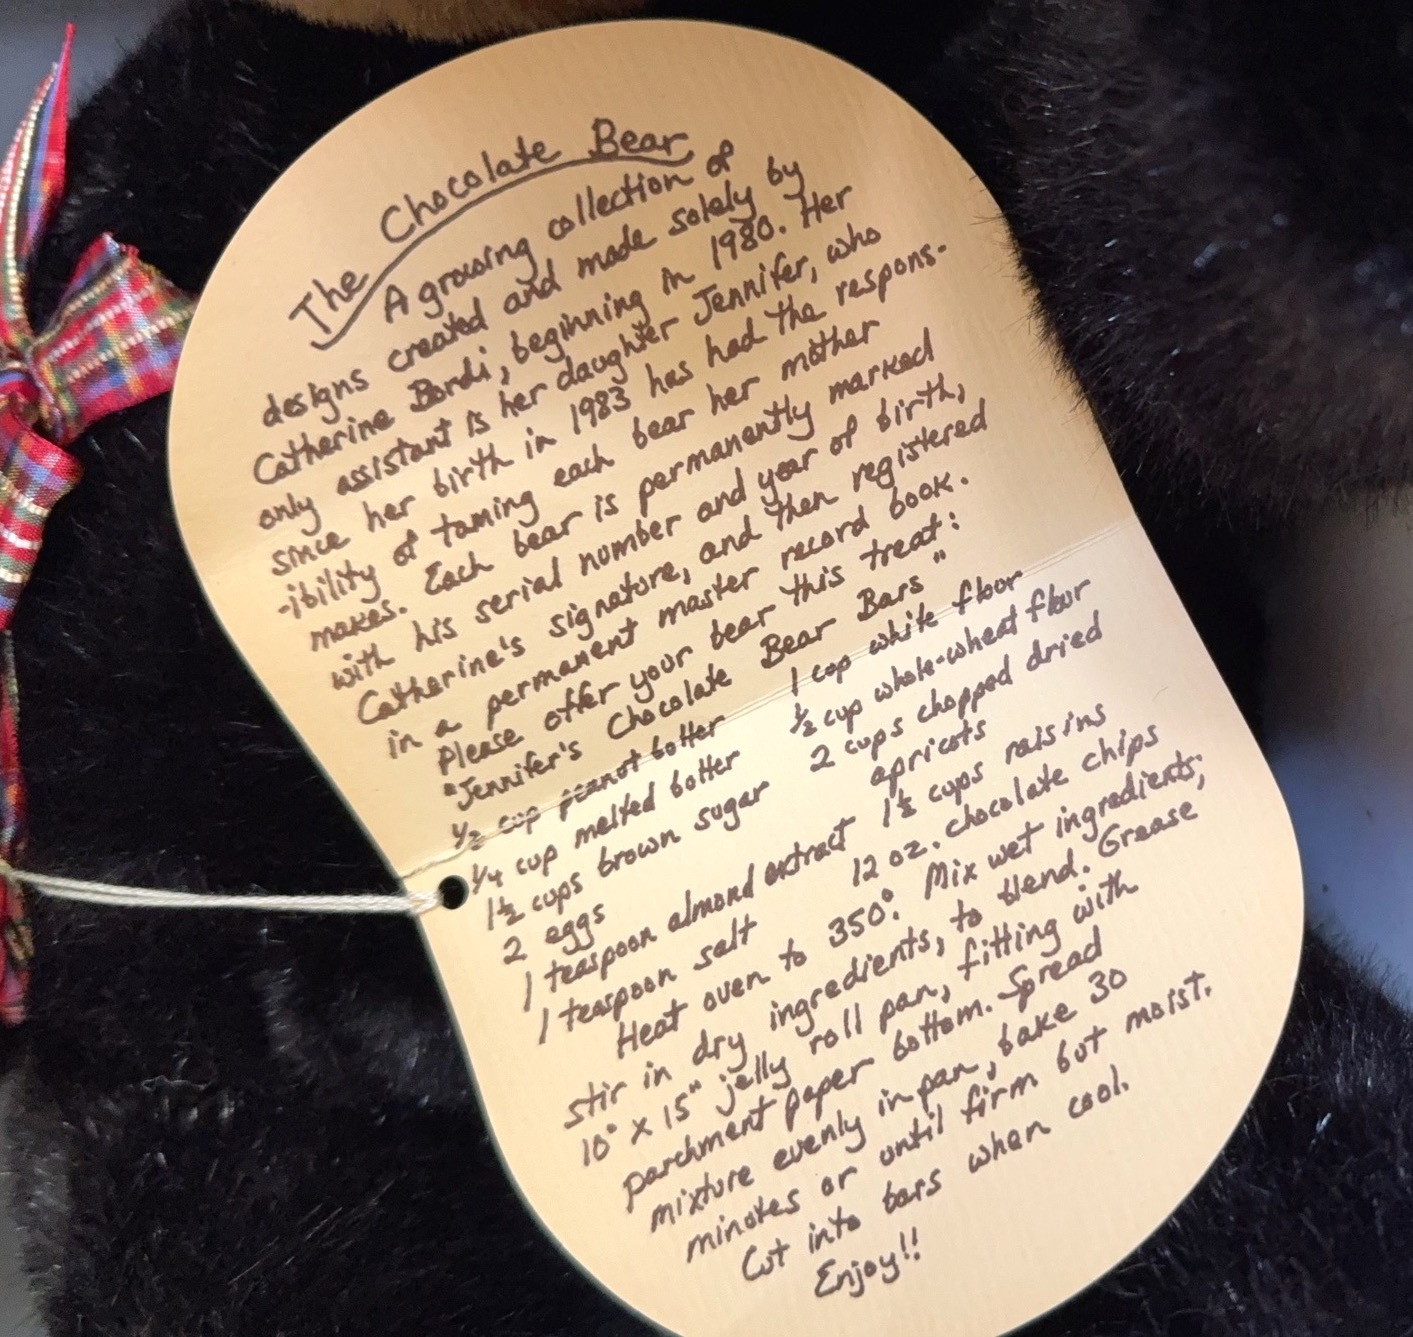 The Chocolate Bear
A growing collection of
designs created and made solely by
Catherine Bordi, beginning in 1980. Her
only assistant is her daughter Jennifer, who
since her birth in 1983 has had the respons-
-ibility of taming each bear her mother
makes. Each bear is permanently marked
with his serial number and year of birth,
Catherine's signature, and then registered
in a permanent master record book.
Please offer your bear this treat:
"Jennifer's Chocolate Bear Bars"
1/2 cup peanut butter
1/4 cup melted butter
1 1/2 cups brown sugar
2 eggs
1 teaspoon almond extract
1 teaspoon salt
1 cup white flour
1/2 cup whole-wheat flour
2 cups chopped dried
apricots
1 1/2 cups raisins
12 oz. chocolate chips
Heat oven to 350°. Mix wet ingredients;
stir in dry ingredients, to blend. Grease
10" x 15" jelly roll pan, fitting with
parchment paper bottom. Spread
mixture evenly in pan, bake 30
minutes or until firm but moist.
Cut into bars when cool.
Enjoy!!